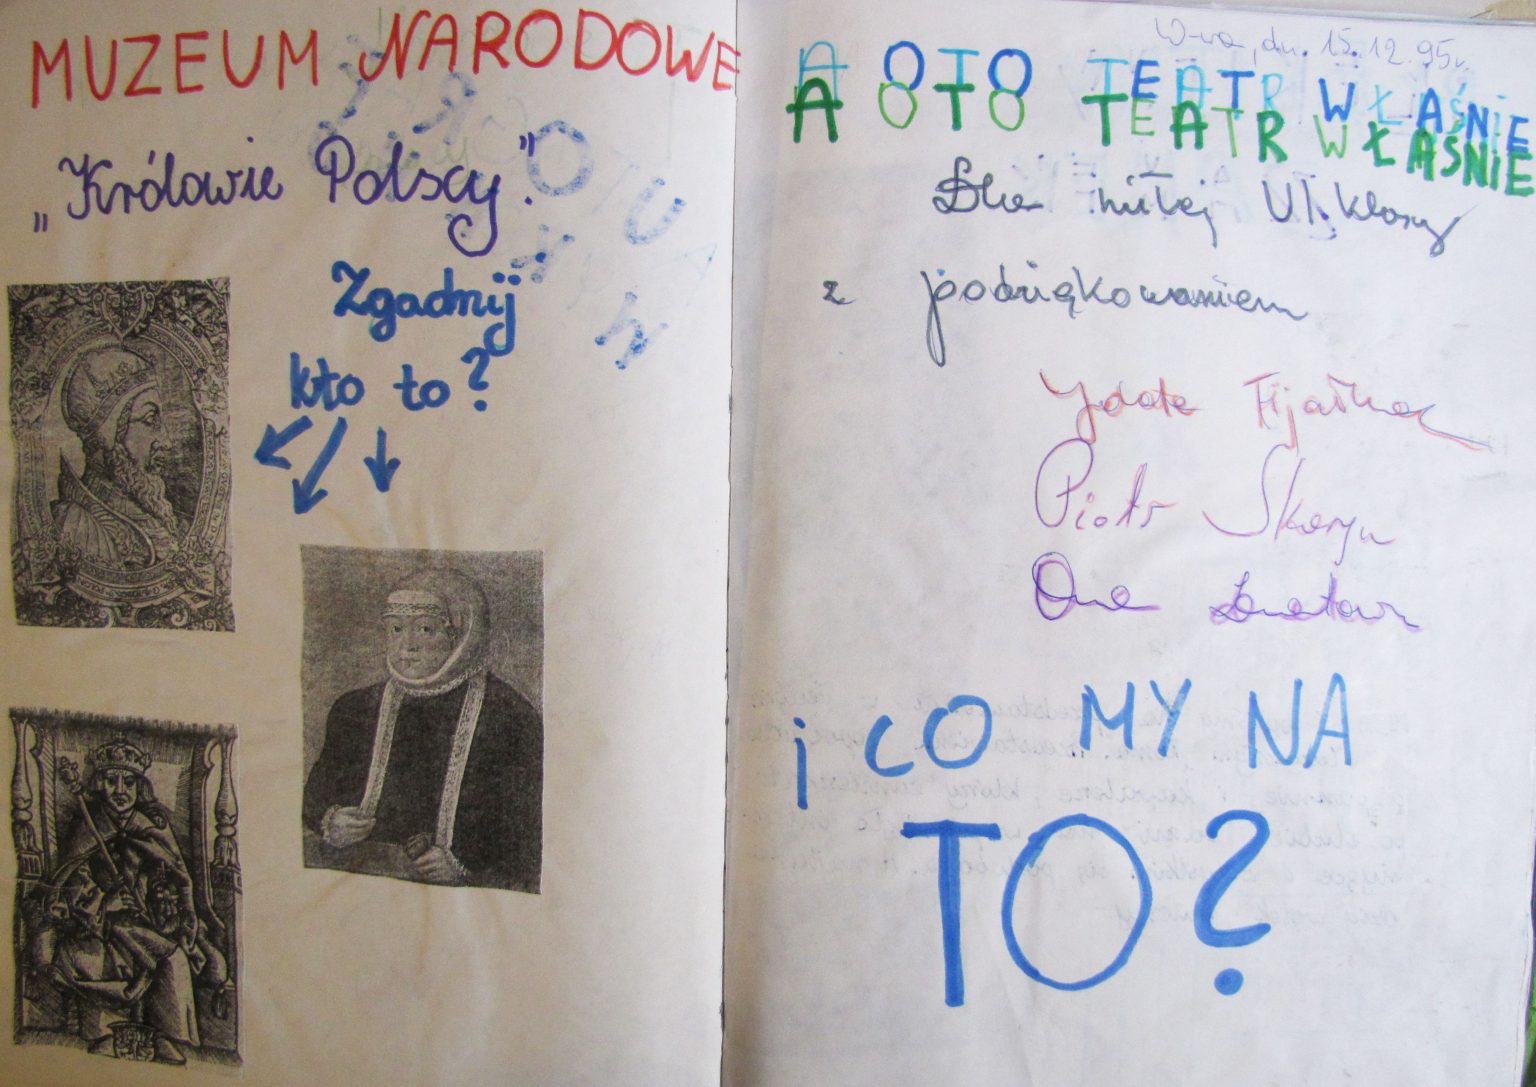 MUZEUM NARODOWE
„Królowie Polscy."
Zgadnij
kto to?
W-wa, dn. 15.12.95r.
A OTO TEATR WŁAŚNIE
A OTO TEATR WŁAŚNIE
Dla miłej VI klasy
z podziękowaniem
Piotr Skarga
i CO MY NA
TO?